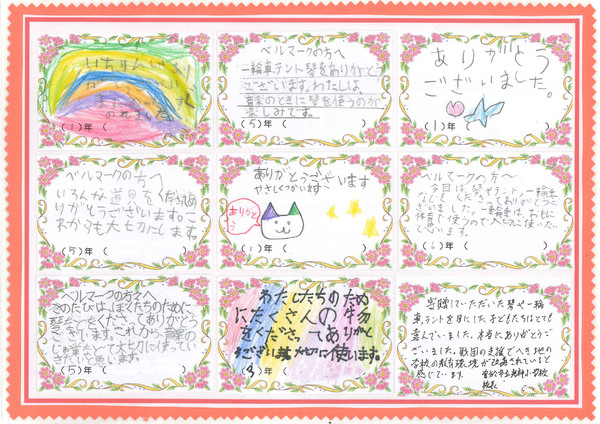 いちりんしゃ
(1)年(　)
ベルマークの方へ
一輪車テント琴をありがとう
ございます。わたしは
音楽のときに琴を使うのが
楽しみです。
(5)年(　)
ありがとう
ございました。
(1)年(　)
ベルマークの方へ
いろんな道具をくださりあ
りがとうございます。こ
れからも大切にします。
(5)年(　)
ありがとうございます
やさしくつかいます
ありがとう
(1)年(　)
ベルマークの方へ
今回は、琴やテント、一輪車
などをくださってありがとうご
ざいました。一輪車は、おもに
体育で使うので大切に使いた
いです。
(6)年(　)
ベルマークの方々へ
このたびは、ぼくたちのために
琴などをくださってありがとう
ございます。これから音楽の
(5)年(　)
わたしたちのため
にたくさんの物
をくださってありがと
うございます。大切に使います。
年(　)
寄贈していただいた琴や一輪
車、テントを目にした子どもたちはとても
喜んでいました。本当にありがとうご
ざいました。財団の支援でへき地の
学校の教育環境が改善されていると
感じています。
校長